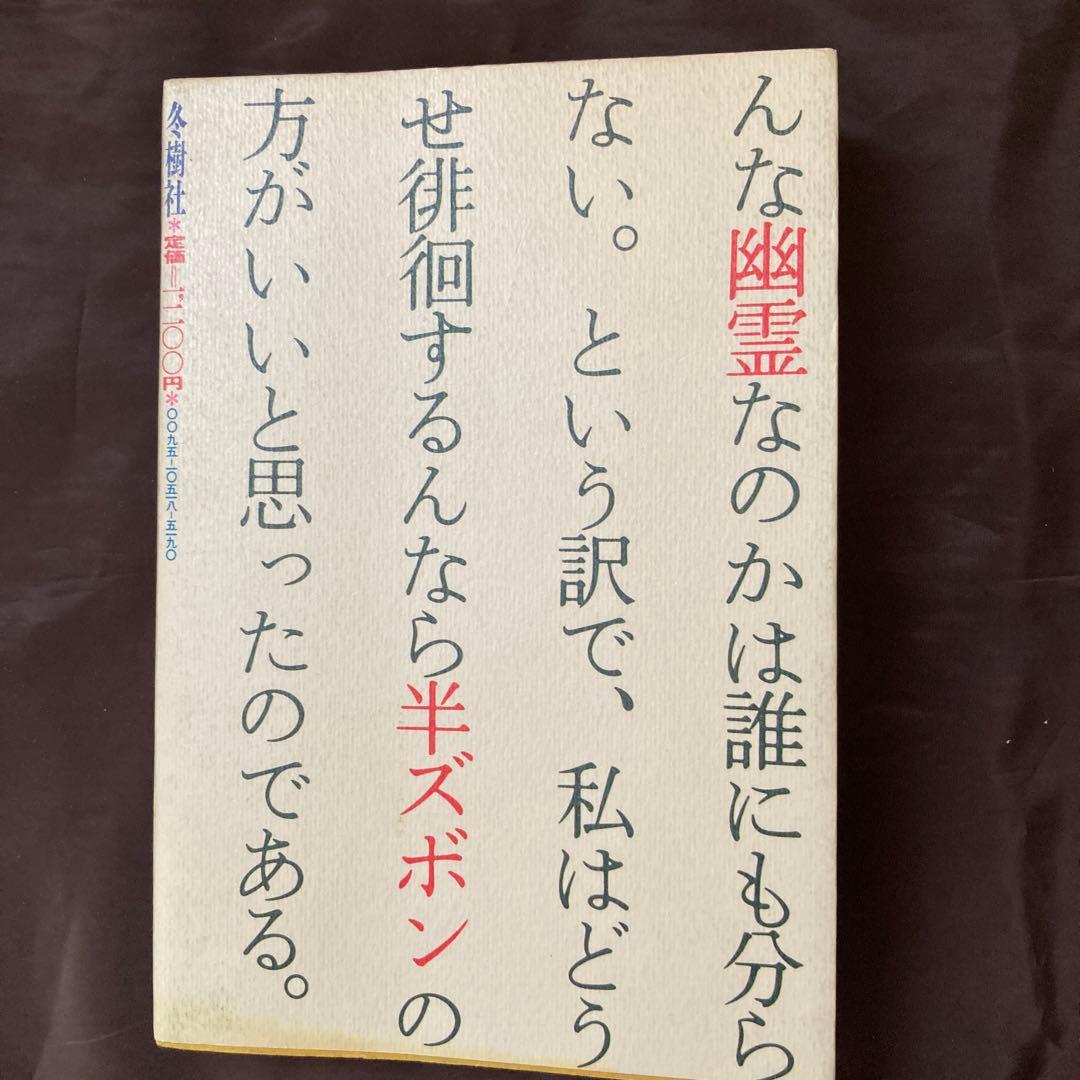 んな幽霊なのかは誰にも分ら
ない。という訳で、私はどう
せ徘徊するんなら半ズボンの
方がいいと思ったのである。
冬樹社*定価=一、二〇〇円*〇〇九五-一〇五一八-五一九〇